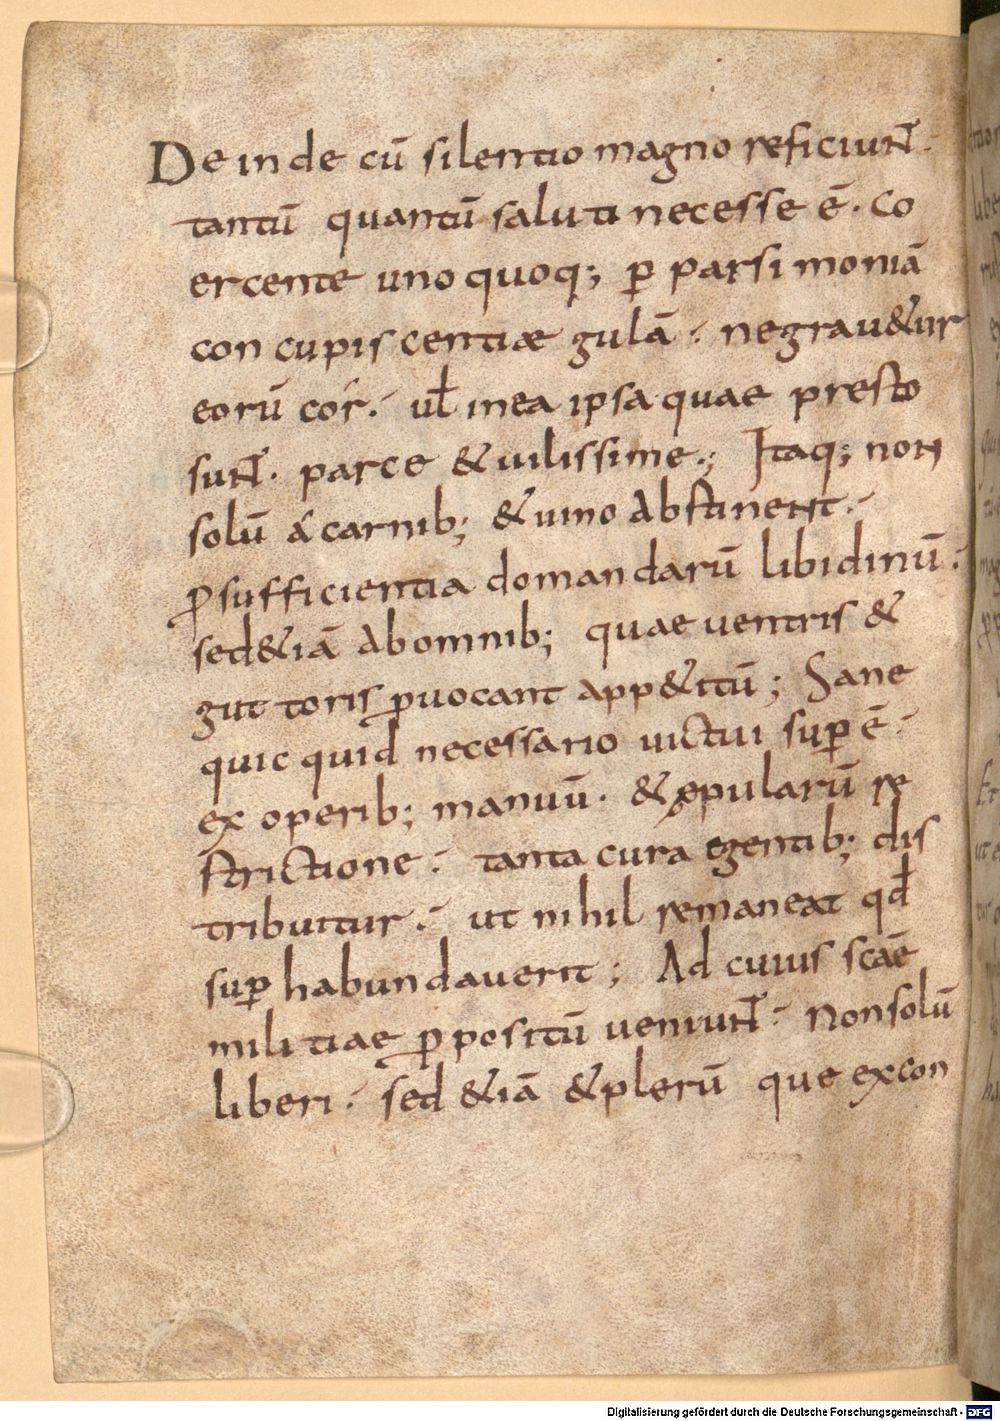 Deinde cū silentio magno reficiunt̄.
tantū quantū saluti necesse ē. Co
ercente uno quoq; ꝑ parsimoniā
concupiscentiæ gulā. negrau&ur
eorū cór. ul̄ inea ipsa quae presto
sunt̄. parce & uilissime.; Itaq; non
solū á carnib; & uino abstinent.
ꝓsufficientia domandarū libidinū.
sed &iā ab omnib; quae uentris &
gutturis ꝓuocant app&itū; Sane
quic quid necessario uictui suꝑ ē.
ex operib; manuū. & epularū re
strictione. tanta cura egentib; dis
tribuitur. ut nihil remaneat qđ
suꝑ habundauerit; Ad cuius scāe
militiae ꝓpositū ueniunt̄. Non solū
liberi. sed &iā & plerū que ex con
Digitalisierung gefördert durch die Deutsche Forschungsgemeinschaft - DFG